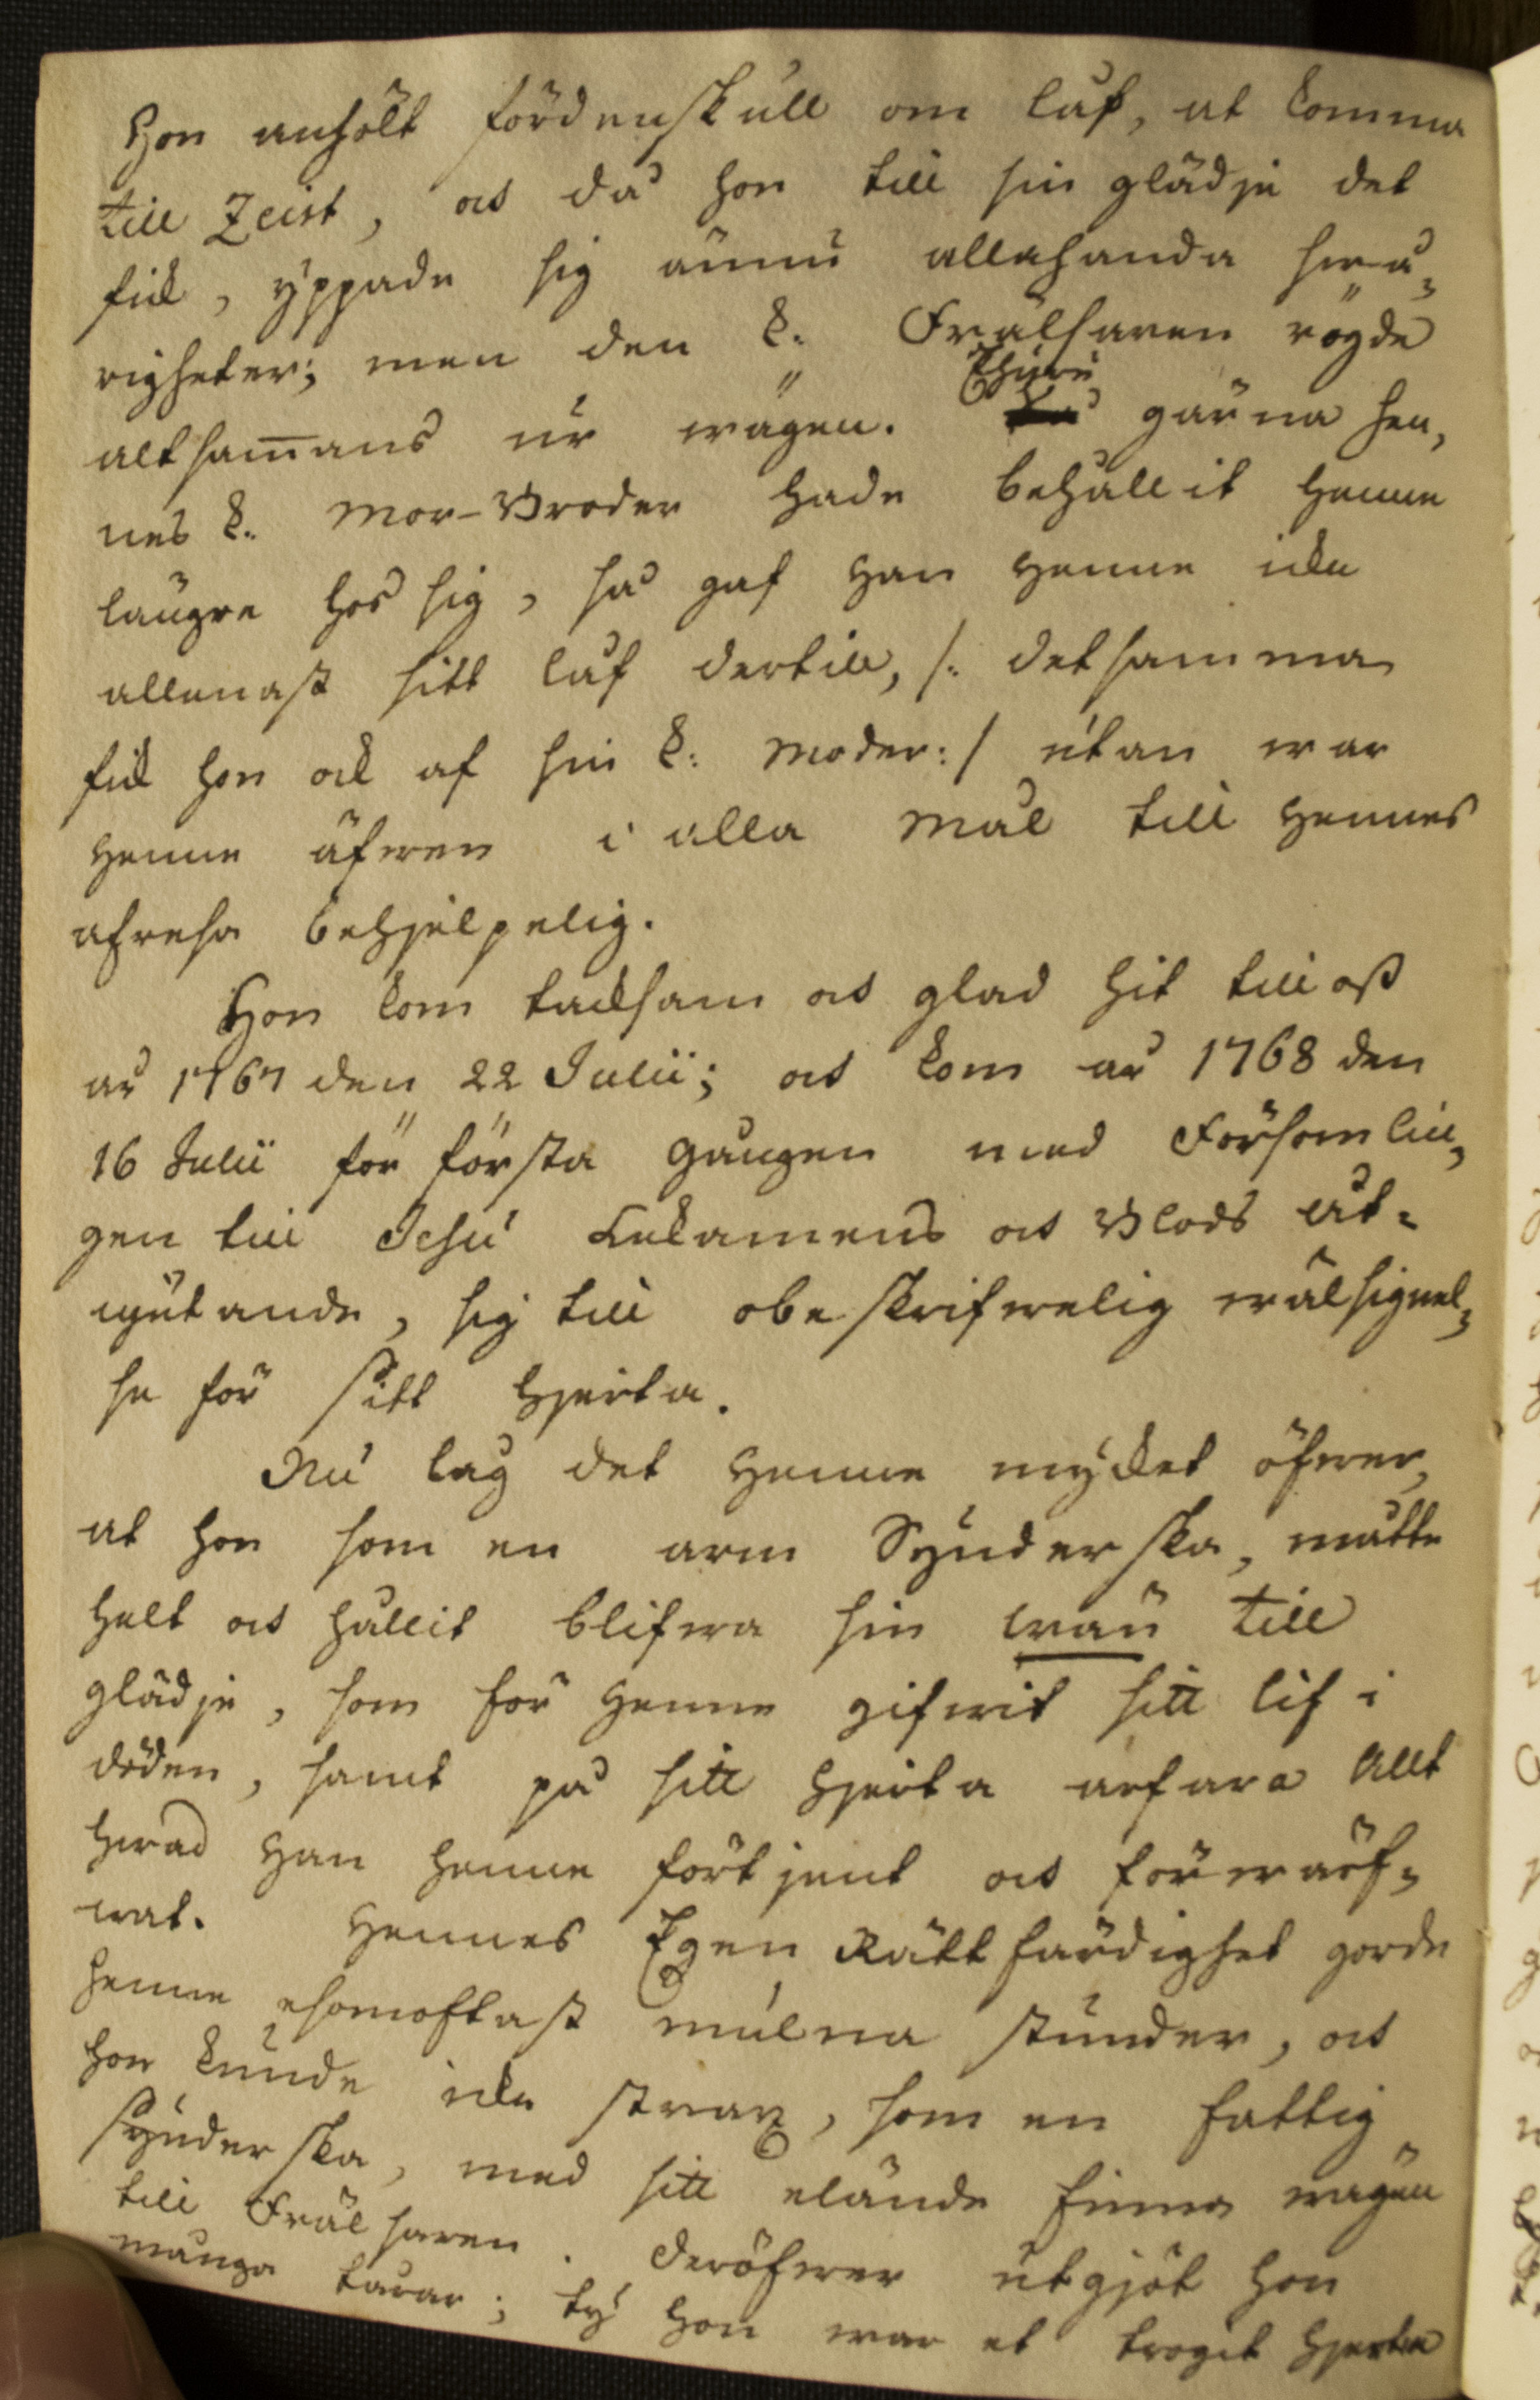 Hon anhölt fördenskull om låf, at komma
till Zeist, och då hon till sin glädje det
fick, yppade sig ännu allahanda swå-
righeter; men den k. Frälsaren rögde
altsam̅ans ur wägen. Ehuru gärna hen-
nes k. Mor-Broder hade behållit henne
längre hos sig, så gaf han henne icke
allenast sitt låf dertill, /: detsamma
fick hon ock af sin k: Moder:/ utan war
henne äfwen i alla mål till hennes
afresa behjelpelig.
Hon kom tacksam och glad hit till oss
år 1767 den 22 Julii; och kom år 1768 den
16 Julii för första gången med Församlin-
gen till Jesu Lekamens och Blods åt-
njutande, sig till obeskrifwelig wälsignel-
se för sitt hjerta.
Nu låg det henne mycket öfwer,
at hon som en arm Synderska, måtte
helt och hållit blifwa sin wän till
glädje, som för henne gifwit sitt lif i
döden, samt på sitt hjerta erfara Allt
hwad han henne förtjent och förwärf-
wat. Hennes Egen Rättfärdighet gorde
henne esomoftast mulna stunder, och
hon kunde icke strax, som en fattig
Synderska, med sitt elände finna wägen
till Frälsaren. Deröfwer utgjöt hon
många tårar; ty hon war et troget hjerta